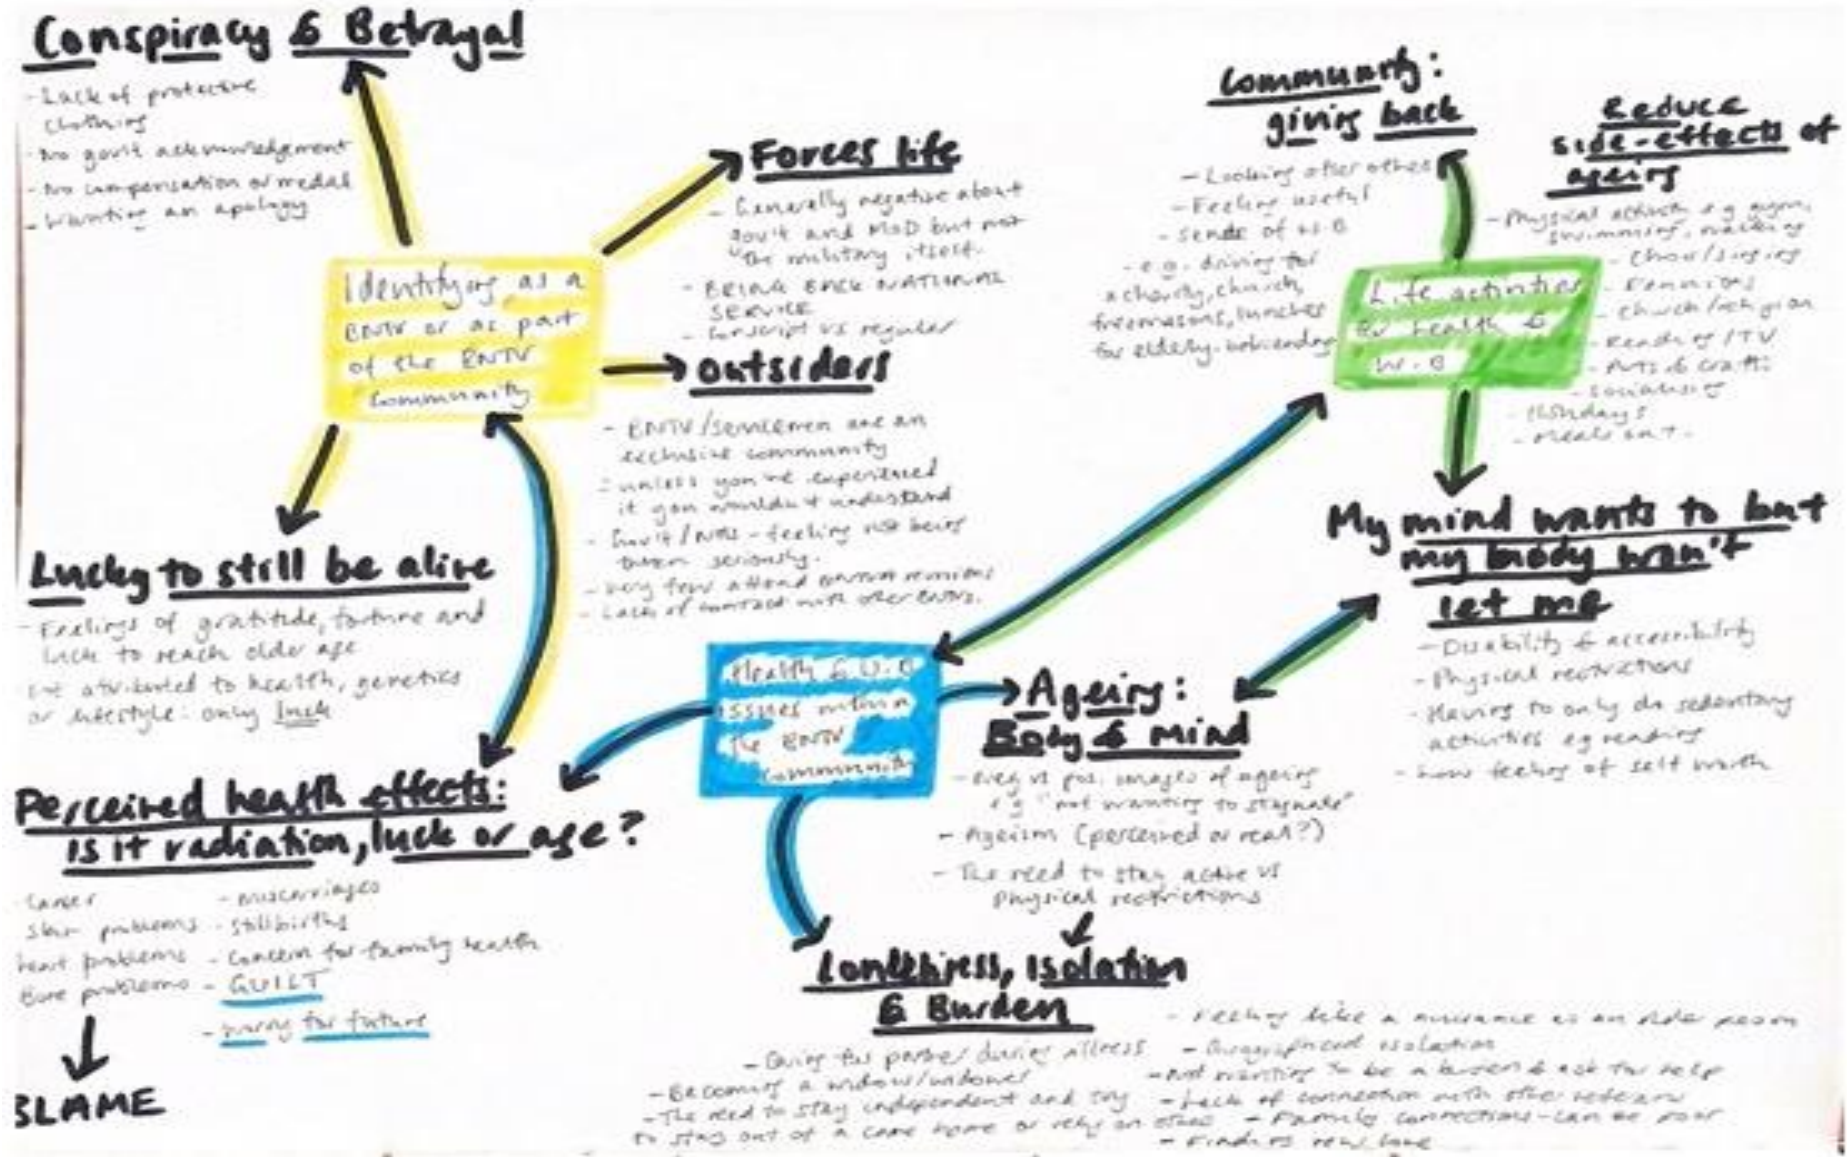 Conspiracy & Betrayal
- Lack of protective
clothing
- No gov't acknowledgement
- No compensation or medal
- Wanting an apology
Forces life
- Generally negative about
gov't and MoD but not
the military itself.
- BRING BACK NATIONAL
SERVICE
- Conscript vs regular
Identifying as a
BNTV or as part
of the BNTV
Community
Outsiders
- BNTV/servicemen are an
exclusive community
= unless you've experienced
it you wouldn't understand
- Gov't / - feeling not being
taken seriously.
- Very few attend reunions
- Lack of contact with other BNTVs.
Lucky to still be alive
- Feelings of gratitude, fortune and
luck to reach older age
not attributed to health, genetics
or lifestyle: only luck
Perceived health effects:
is it radiation, luck or age?
Cancer
Skin problems
heart problems
Bone problems
- miscarriages
- Stillbirths
- Concern for family health
- GUILT
- Worry for future
BLAME
Health & W.B
issues within
the BNTV
Community
Ageing:
Body & mind
- Neg vs pos. images of ageing
e.g "not wanting to stagnate"
- Ageism (perceived or real?)
- The need to stay active vs
Physical restrictions
Loneliness, isolation
& Burden
- Caring for partner during illness
- Becoming a widow/widower
- The need to stay independent and try
to stay out of a care home or rely on others
- Feeling like a nuisance as an older person
- Geographical isolation
- Not wanting to be a burden & ask for help
- Lack of connection with other veterans
- Family connections - can be poor
- Finding new love
Community:
giving back
- Looking after others
- Feeling useful
- Sense of W.B
- e.g. driving for
a charity, church,
freemasons, lunches
for elderly, befriending
Reduce
side-effects of
ageing
- Physical activity e.g gym,
swimming, walking
- Choir/singing
- Church/religion
- Reading / TV
- Arts & crafts
- Socialising
- Holidays
- Meals out.
Life activities
for health &
W.B
My mind wants to but
my body won't
let me
- Disability & accessibility
- Physical restrictions
- Having to only do sedentary
activities eg reading
- Low feeling of self worth